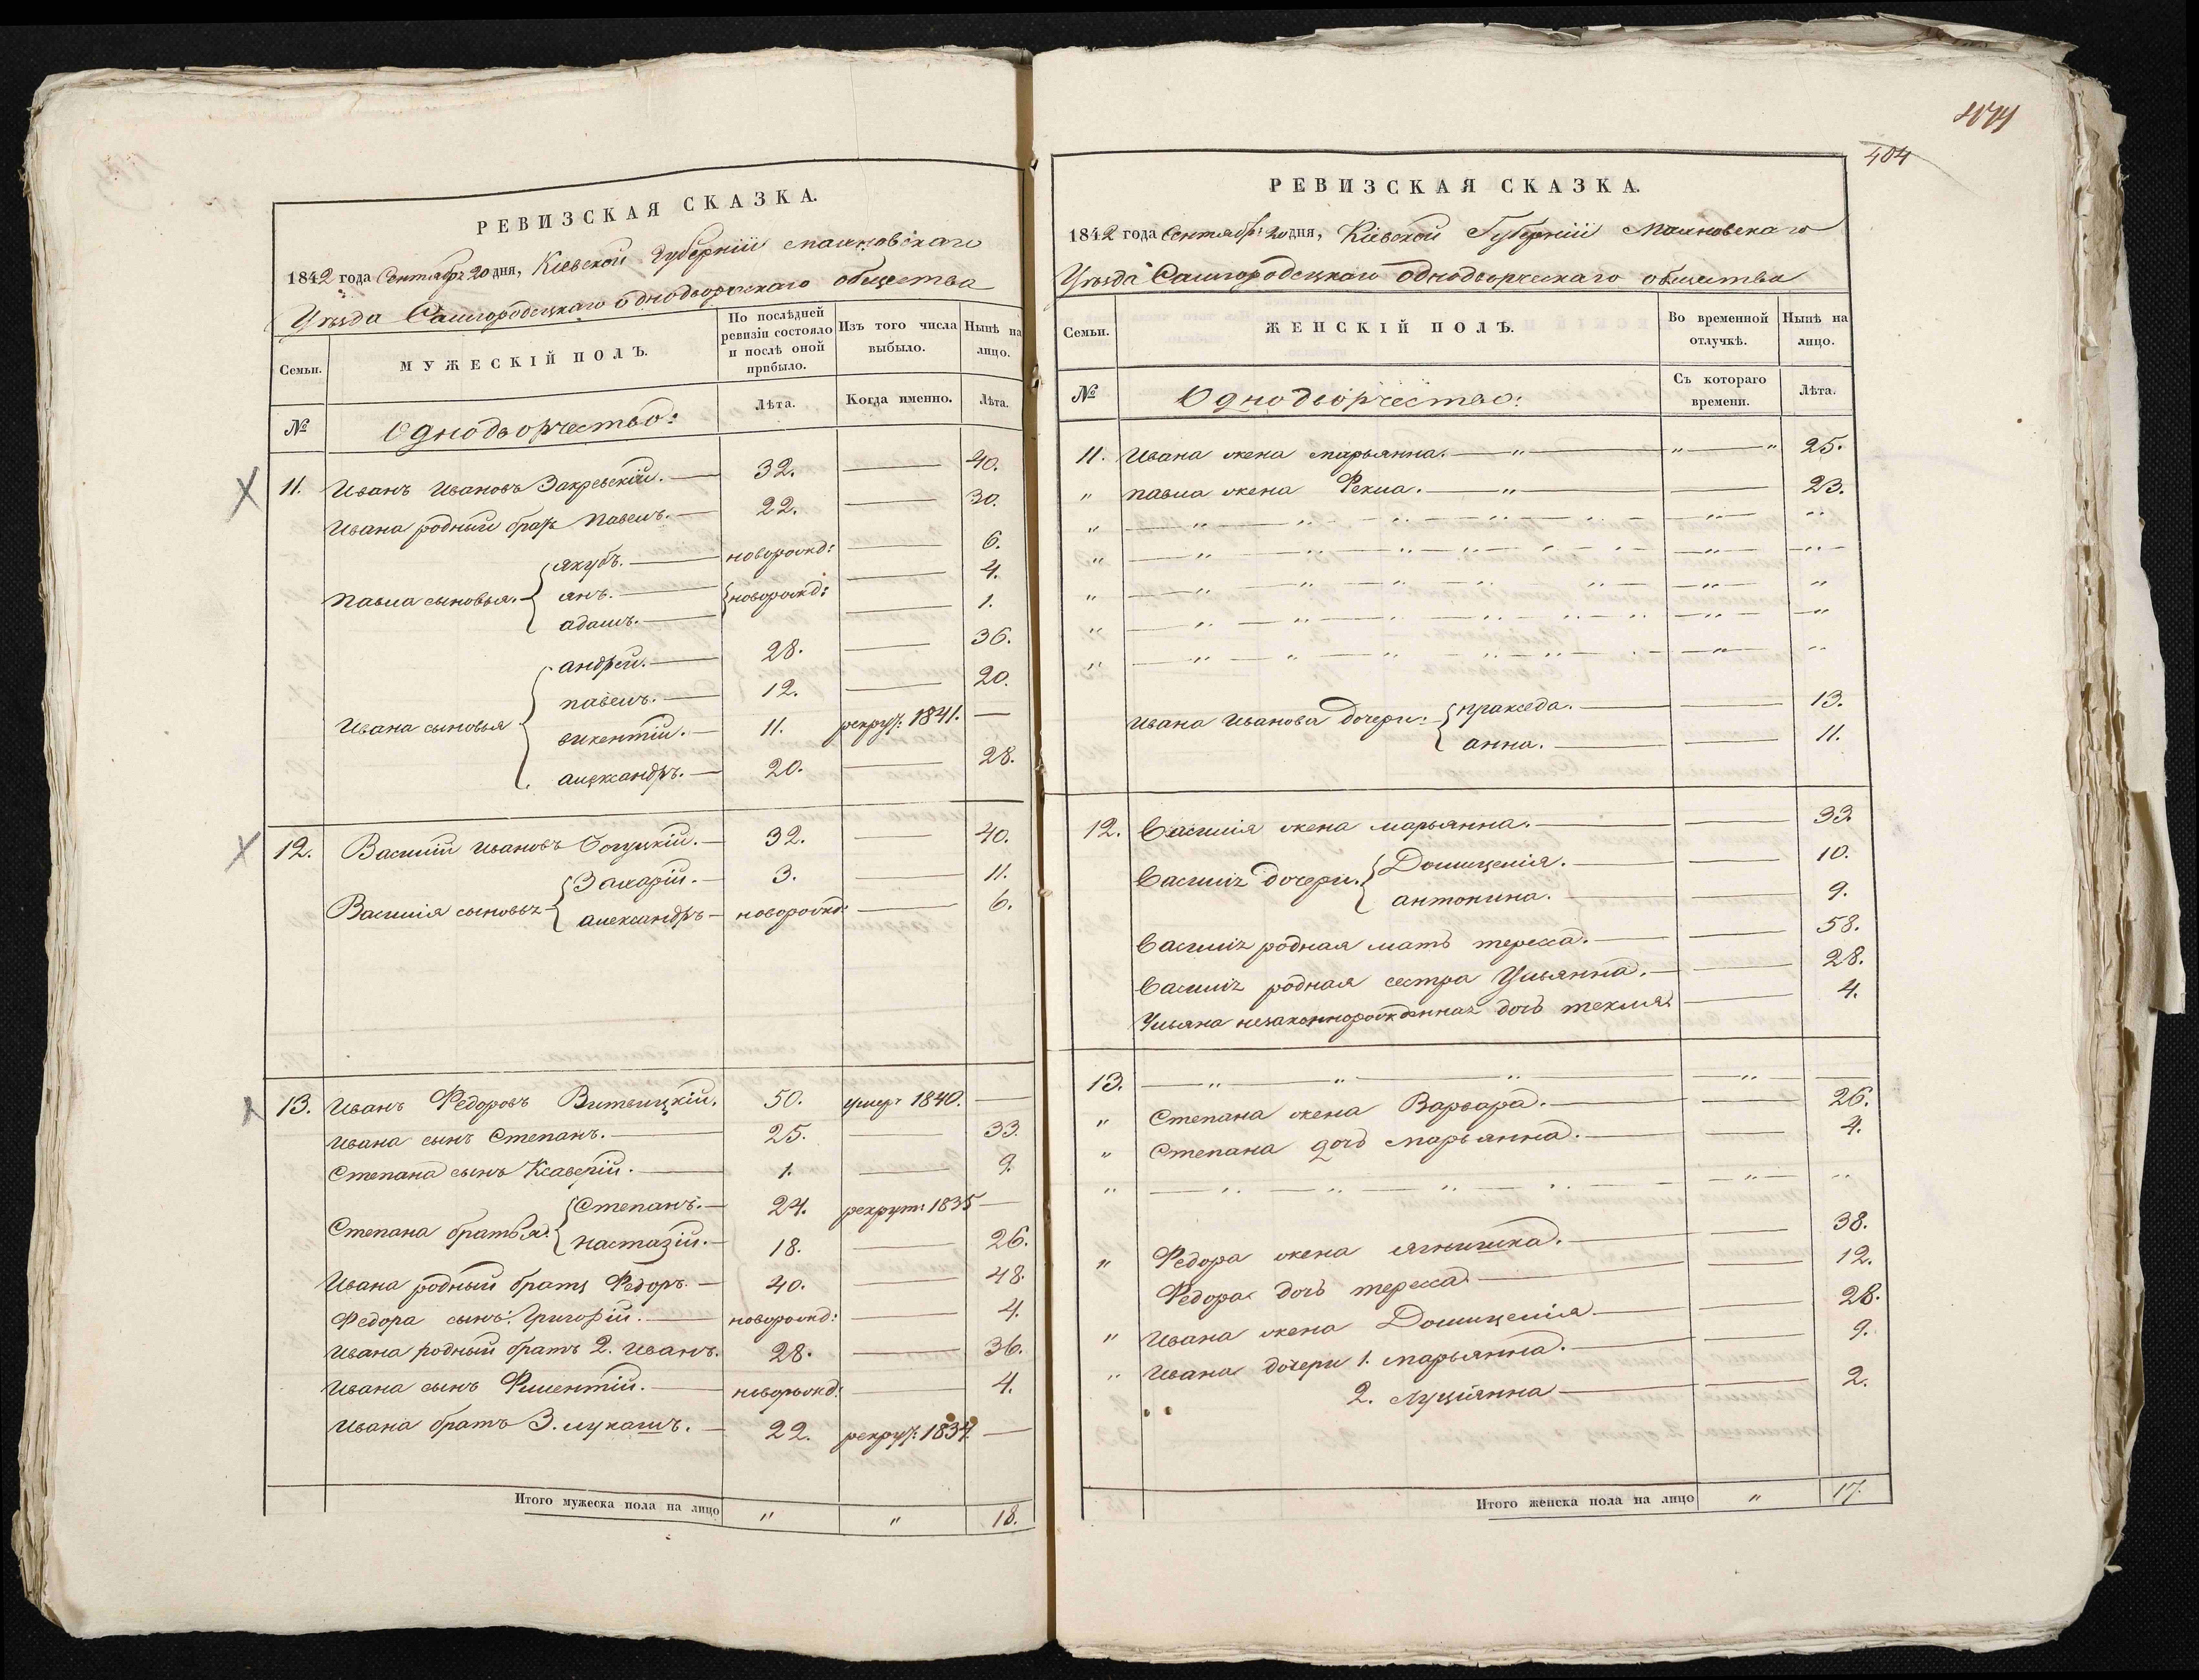 РЕВИЗСКАЯ СКАЗКА.
1842 года Сентябр: 20 дня, Кіевской Губерніи Махновскаго
Уѣзда Самгородецкаго однодворческаго общества
Семьи.
МУЖЕСКІЙ ПОЛЪ.
По послѣдней ревизіи состояло и послѣ оной прибыло.
Изъ того числа выбыло.
Нынѣ на лицо.
№
Однодворчество:
Лѣта.
Когда именно.
Лѣта.
11. Иванъ Ивановъ Закревскій. — 32. — 40.
Ивана родный братъ Павелъ. — 22. — 30.
Павла сыновья. { якубъ. — новорожд: — 6.
янъ. — { новорожд: — 4.
адамъ. — 1.
Ивана сыновья { андрей. — 28. — 36.
павелъ. — 12. — 20.
викентій. — 11. рекрут: 1841. —
александръ. — 20. — 28.
12. Василій Ивановъ — 32. — 40.
Василія сыновья { Захарій. — 3. — 11.
александръ — новорожд: — 6.
13. Иванъ Федоровъ Витвицкій. 50. умер 1840. —
Ивана сынъ Степанъ. — 25. — 33.
Степана сынъ Ксаверій. — 1. — 9.
Степана братья { Степанъ. — 24. рекрут: 1835 —
настазій. — 18. — 26.
Ивана родный братъ Федоръ. — 40. — 48.
Федора сынъ: Григорій. — новорожд: — 4.
Ивана родный братъ 2. Иванъ. 28. — 36.
Ивана сынъ Филентій. — новорожд: — 4.
Ивана братъ 3. лукашъ. — 22. рекрут: 1834. —
Итого мужеска пола на лицо " " 18.
404
РЕВИЗСКАЯ СКАЗКА.
1842 года Сентябр: 20 дня, Кіевской Губерніи Махновскаго
Уѣзда Самгородецкаго однодворческаго общества
Семьи.
ЖЕНСКІЙ ПОЛЪ.
Во временной отлучкѣ.
Нынѣ на лицо.
№
Однодворчество:
Съ котораго времени.
Лѣта.
11. Ивана жена марьянна. — " — " — " 25.
" павла жена Фекла. — " — 23.
Ивана Иванова дочери: { пракседа. — 13.
анна. — 11.
12. Василія жена марьянна. — 33.
Василія дочери. { Домицелія. — 10.
антонина. — 9.
Василія родная мать тересса. — 58.
Василія родная сестра Ульянна. — 28.
Ульяна незаконнорожденная дочь текля — 4.
13. — " — " — " — " —
" Степана жена Варвара. — 26.
" Степана дочь марьянна. — 4.
" Федора жена ягнишка. — 38.
Федора дочь тересса — 12.
" Ивана жена Домицелія — 28.
" Ивана дочери 1. марьянна. — 9.
2. Луціянна — 2.
Итого женска пола на лицо " 17.